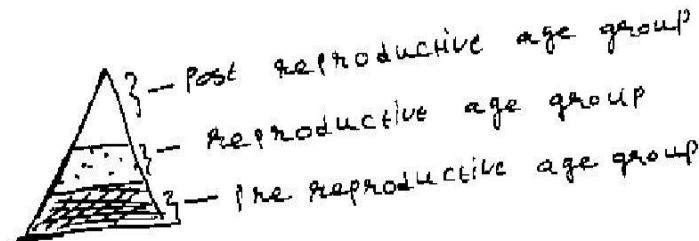 Post reproductive age group
reproductive age group
Pre reproductive age group